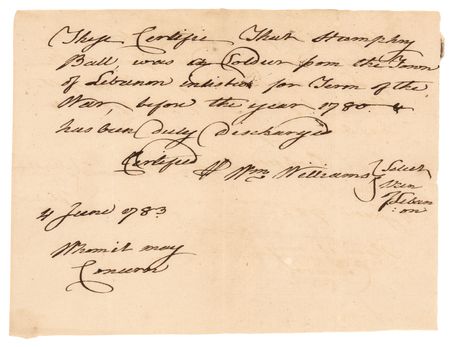 These Certifie That Humphry
Ball, was a Soldier from the Town
of Lebanon enlisted for Term of the
War, before the year 1780. &
has been duly Discharged
Certified
Wm Williams } Select
Men
of Leban
:on
4 June 1783
Whom it may
Concern